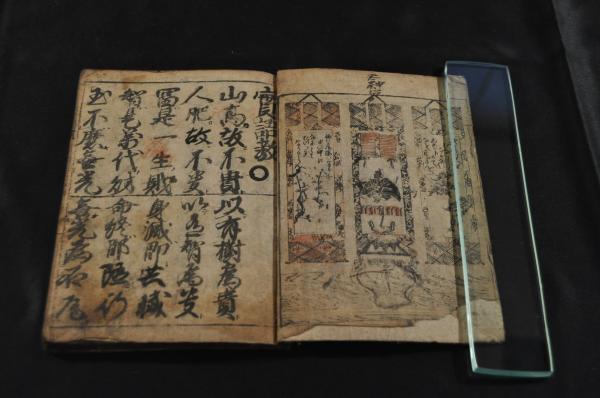 實語教
山高故不貴以有樹為貴
人肥故不貴以有智為貴
冨是一生財身滅即共滅
智是萬代財命終即随行
玉不磨無光無光為石瓦